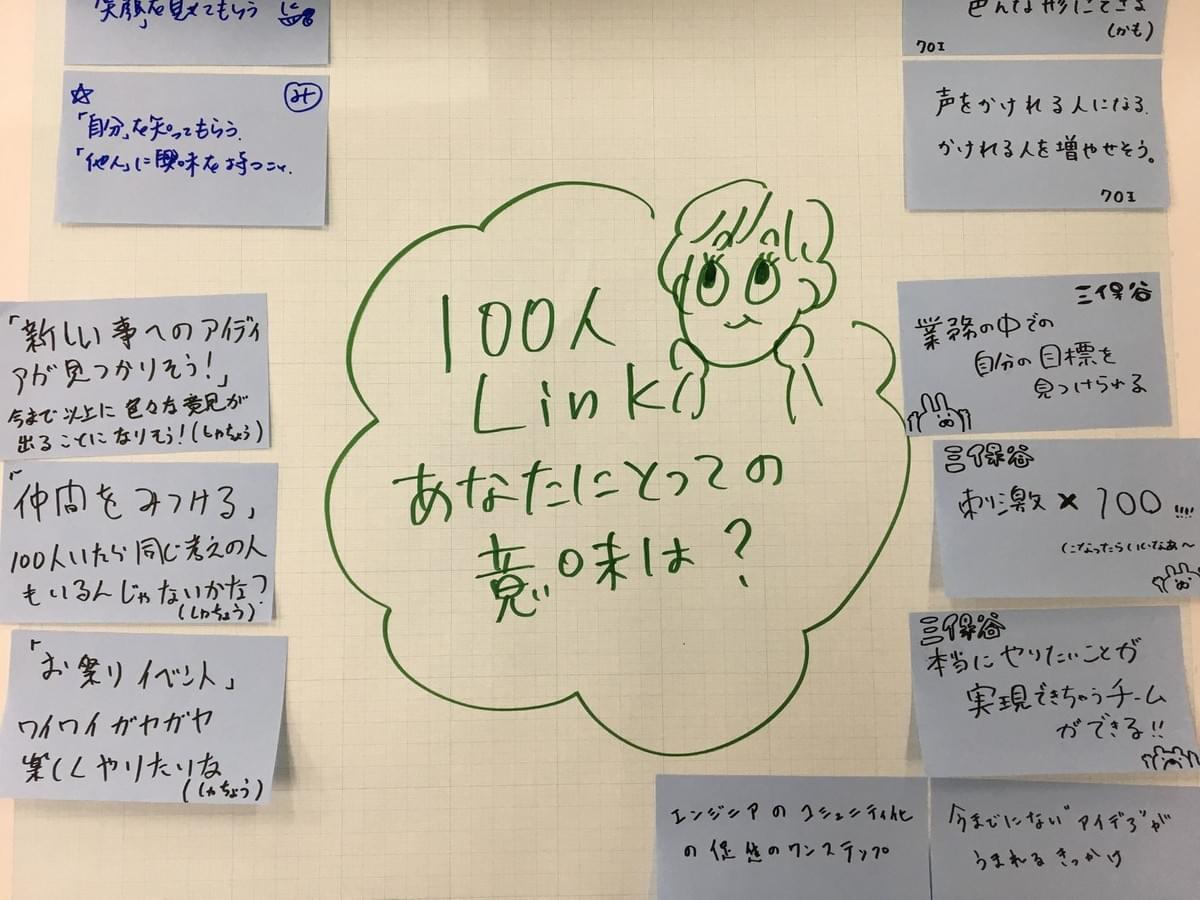 「笑顔」を見せてもらう
☆ み
「自分」を知ってもらう.
「他人」に興味を持つこと.
「新しい事へのアイディ
アが見つかりそう!」
今まで以上に色々な意見が
出ることになりそう!(しゃちょう)
「仲間をみつける」
100人いたら同じ考えの人
もいるんじゃないかな?
(しゃちょう)
「お祭りイベント」
ワイワイガヤガヤ
楽しくやりたいな
(しゃちょう)
100人
Link
あなたにとっての
意味は?
色んな形にできる
(かも)
声をかけれる人になる.
かけれる人を増やせそう。
三保谷
業務の中での
自分の目標を
見つけられる
三保谷
刺激×100!!!!
になったらいいなあ〜
三保谷
本当にやりたいことが
実現できちゃうチーム
ができる!!
エンジニアのコミュニティ化
の促進のワンステップ
今までにない"アイデア"が
うまれるきっかけ